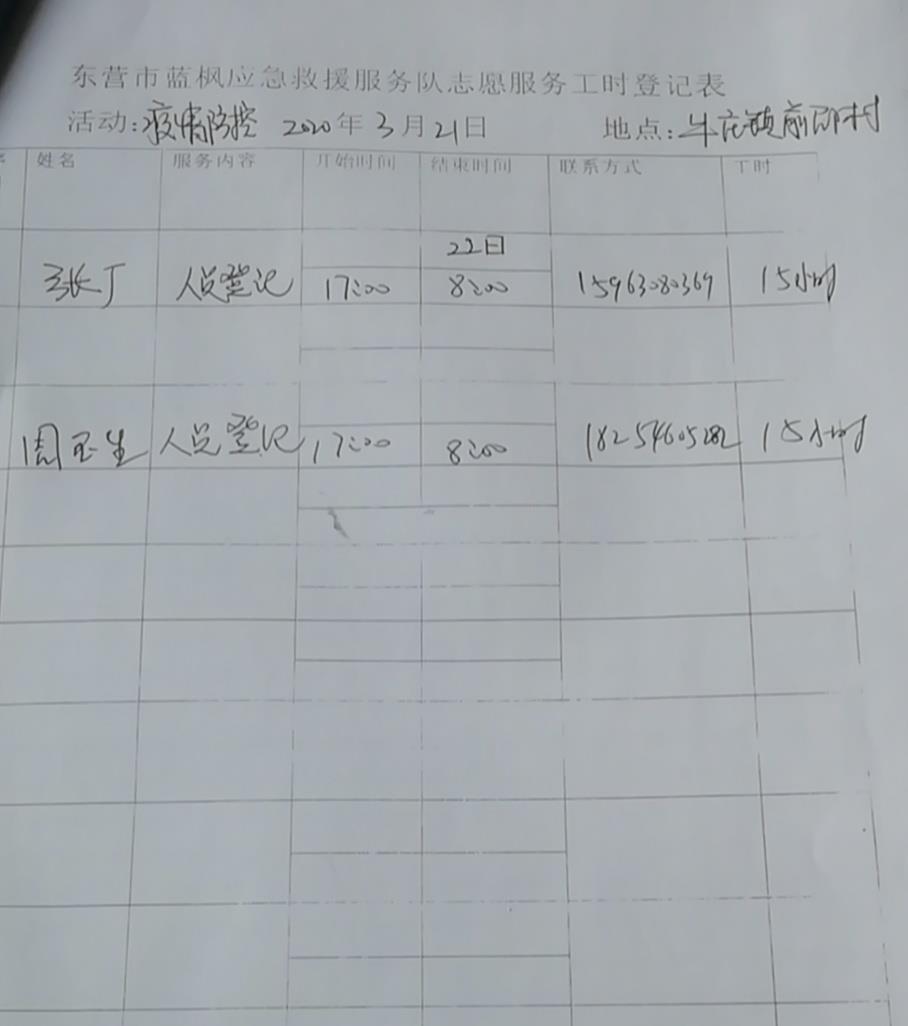 东营市蓝枫应急救援服务队志愿服务工时登记表
活动:疫情防控 2020年3月21日 地点:牛庄镇前邵村
姓名 服务内容 开始时间 结束时间 联系方式 工时
22日
张丁 人员登记 17:00 8:00 15963080369 15小时
周玉生 人员登记 17:00 8:00 18254605282 15小时